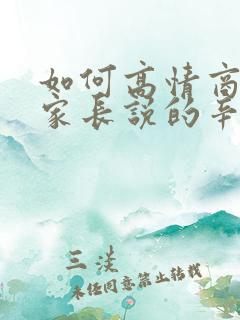 如何高情商
家长说的辛
三淡
未经同意禁止转载